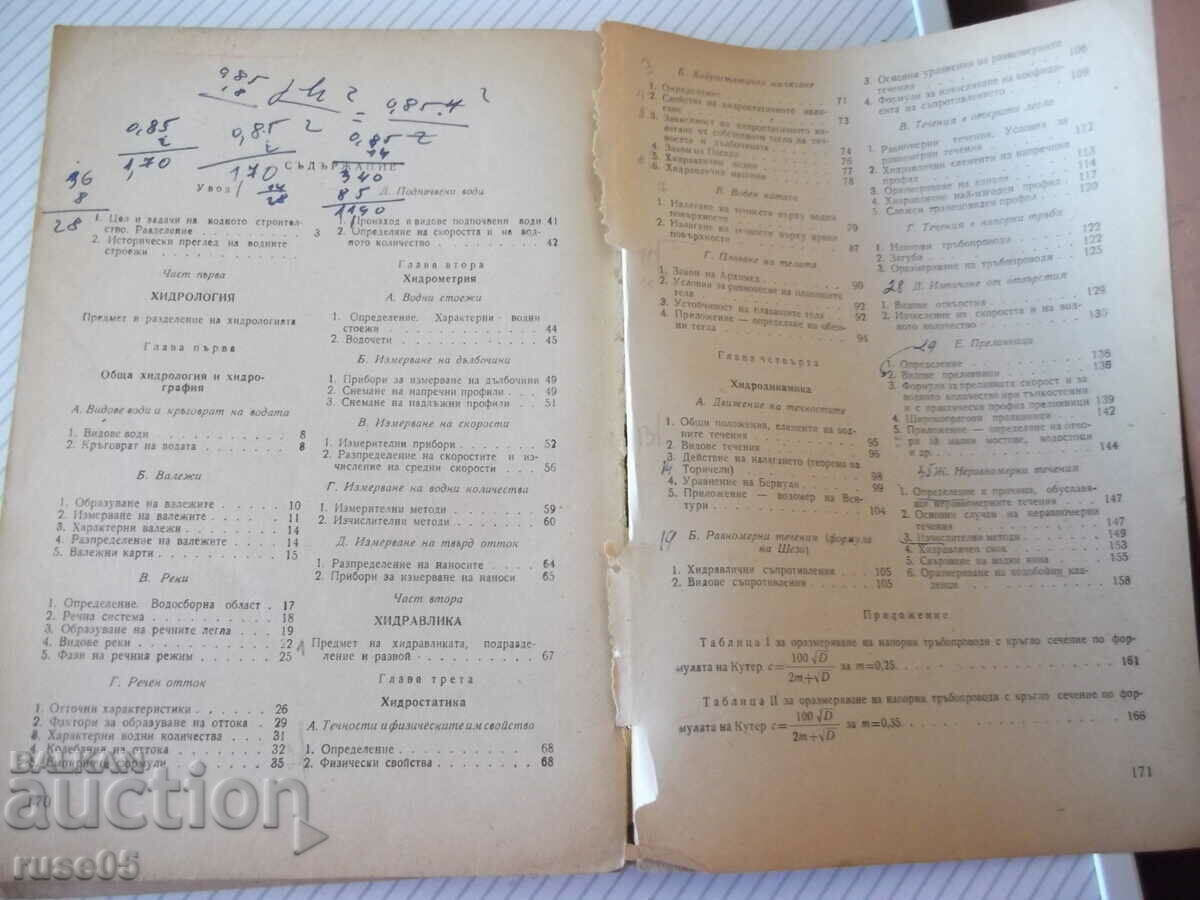 0,85
1,70
0,85
170
0,85
14
340
85
1190
36
8
28
СЪДЪРЖАНИЕ
Увод
1. Цел и задачи на водното строител-
ство. Разделение 3
2. Исторически преглед на водните
строежи
Част първа
ХИДРОЛОГИЯ
Предмет и разделение на хидрологията
Глава първа
Обща хидрология и хидро-
графия
А. Видове води и кръговрат на водата
1. Видове води 8
2. Кръговрат на водата 8
Б. Валежи
1. Образуване на валежите 10
2. Измерване на валежите 11
3. Характерни валежи 14
4. Разпределение на валежите 14
5. Валежни карти 15
В. Реки
1. Определение. Водосборна област 17
2. Речна система 18
3. Образуване на речните легла 19
4. Видове реки 22
5. Фази на речния режим 25
Г. Речен отток
1. Отточни характеристики 26
2. Фактори за образуване на оттока 29
3. Характерни водни количества 31
4. Колебания на оттока 32
формули 35
170
Д. Подпочвени води
1. Произход и видове подпочвени води 41
2. Определяне на скоростта и на вод-
ното количество 42
Глава втора
Хидрометрия
А. Водни стоежи
1. Определение. Характерни водни
стоежи 44
2. Водочети 45
Б. Измерване на дълбочини
1. Прибори за измерване на дълбочини 49
2. Снемане на напречни профили 49
3. Снемане на надлъжни профили 51
В. Измерване на скорости
1. Измерителни прибори 52
2. Разпределение на скоростите и из-
числение на средни скорости 56
Г. Измерване на водни количества
1. Измерителни методи 59
2. Изчислителни методи 60
Д. Измерване на твърд отток
1. Разпределение на наносите 64
2. Прибори за измерване на наноси 65
Част втора
ХИДРАВЛИКА
Предмет на хидравликата, подразде-
ление и развой 67
Глава трета
Хидростатика
А. Течности и физическите им свойства
1. Определение 68
2. Физически свойства 68
Б. Хидростатично налягане
1. Определение 71
2. Свойства на хидростатичното наля-
гане 73
3. Зависимост на хидростатичното на-
лягане от собственото тегло на теч-
ността и дълбочината 74
4. Закон на Паскал 76
5. Хидравлични 77
6. Хидравлична 78
В. Воден натиск
1. Налягане на течности върху водни
повърхности 79
2. Налягане на течности върху криви
повърхности 87
Г. Плаване на телата
1. Закон на Архимед 90
2. Условия за равновесие на плаващите
тела 92
3. Устойчивост на плаващите тела 92
4. Приложение — определяне на обем-
ни тегла 94
Глава четвърта
Хидродинамика
А. Движение на течностите
1. Общи положения, елементи на вод-
ните течения 95
2. Видове течения 96
3. Действие на налягането (теорема на
Торичели) 98
4. Уравнение на Бернули 99
5. Приложение — водомер на Вен-
тури 104
19 Б. Равномерни течения (формула
на Шези)
1. Хидравлични съпротивления 105
2. Видове съпротивления 105
3. Основни уравнения на равномерните
течения 106
4. Формули за изчисляване на коефици-
ента на съпротивлението 109
В. Течения в открити легла
1. Равномерни течения. Условия за
равномерни течения 112
2. Хидравлични елементи на напречния
профил 113
3. Оразмеряване на канали 114
4. Хидравлично най-изгоден профил 117
5. Сложен трапецовиден профил 120
Г. Течения в напорни тръби
1. Напорни тръбопроводи 122
2. Загуба 122
3. Оразмеряване на тръбопроводи 125
28 Д. Изтичане от отвърстия
1. Видове отвърстия 129
2. Изчисление на скоростта и на вод-
ното количество 130
29 Е. Преливници
1. Определение 136
2. Видове преливници 136
3. Формули за преливната скорост и за
водното количество при тънкостенни
и с практически профил преливници 139
4. Широкопрагови преливници 142
5. Приложение — определяне на отво-
ри за малки мостове, водостоци
и др. 144
35 Ж. Неравномерни течения
1. Определение и причини, обуславя-
щи неравномерните течения 147
2. Основни случаи на неравномерни
течения 147
3. Изчислителни методи 149
4. Хидравличен скок 153
5. Свързване на водни нива 155
6. Оразмеряване на водобойни кла-
денци 158
Приложение
Таблица I за оразмеряване на напорни тръбопроводи с кръгло сечение по фор-
мулата на Кутер c = 100 √D / 2m+√D за m=0,25 161
Таблица II за оразмеряване на напорни тръбопроводи с кръгло сечение по фор-
мулата на Кутер c = 100 √D / 2m+√D за m=0,35 166
171
BALKAN
auction
ruse05